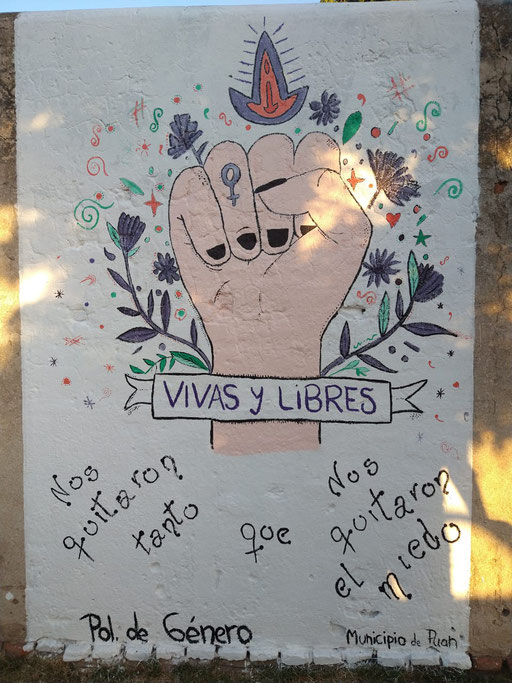 VIVAS Y LIBRES
Nos
quitaron
tanto
que
Nos
quitaron
el
miedo
Pol. de Género
Municipio de Puan